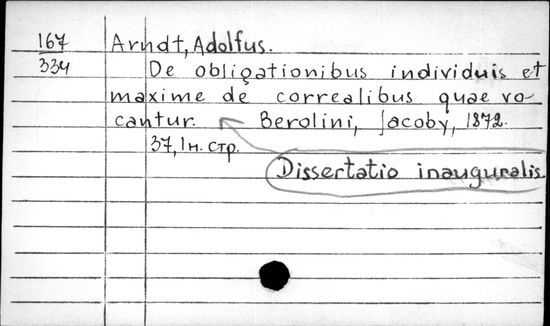 167 Arndt, Adolfus.
334 De obligationibus individuis et
maxime de correalibus quae vo-
cantur. Berolini, Jacoby, 1872.
37, 1 н. стр.
Dissertatio inauguralis.